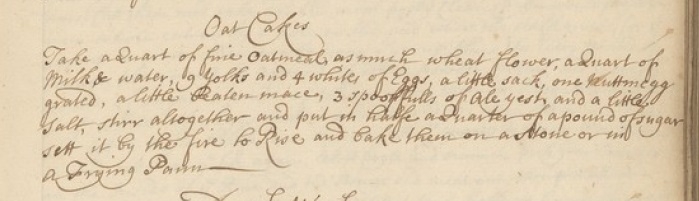 Oat Cakes
Take a Quart of fine Oatmeal, as much wheat flower, a Quart of
Milk & water, 9 yolks and 4 whites of Eggs, a little sack, one Nuttmegg
grated, a little beaten mace, 3 spoonfulls of Ale yest, and a little
salt, stirr altogether and put in halfe a Quarter of a pound of sugar
sett it by the fire to Rise and bake them on a stone or in
a Frying Pann